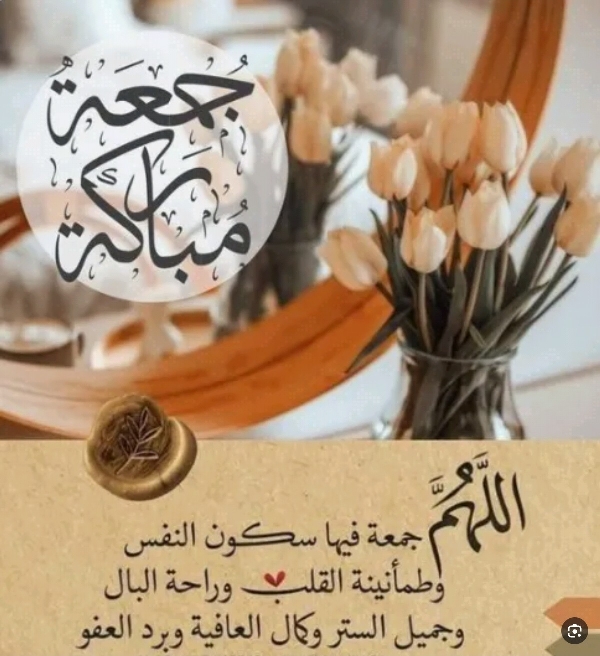 جُمعَةٌ
مُبارَكَة
اللَّهُمَّ جمعة فيها سكون النفس
وطمأنينة القلب وراحة البال
وجميل الستر وكمال العافية وبرد العفو